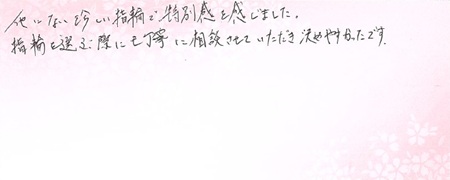 他にない珍しい指輪で特別感を感じました。
指輪を選ぶ際にも丁寧に相談させていただき決めやすかったです。